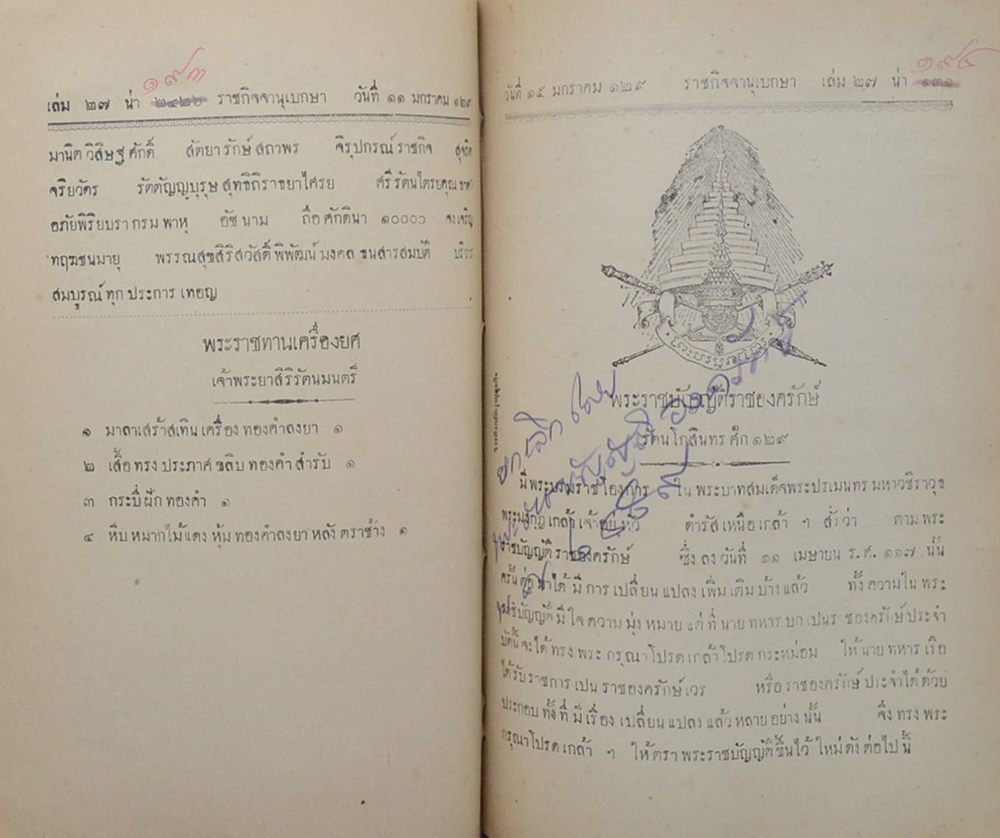 ๑๙๓
เล่ม ๒๗ น่า ราชกิจจานุเบกษา วันที่ ๑๑ มกราคม ๑๒๙
มานิตวิสิษฐศักดิ์ สัตยารักษ์สถาพร จิรุปกรณ์ราชกิจ สุจริต
จริยวัตร รัตตัญญูบุรุษสุทธิถิราชยาไศรย ศรีรัตนไตรยคุณ
อภัยพิริยบรากรมพาหุ ถือศักดินา ๑๐๐๐๐ จงเจริญ
ทฤฆชนมายุ พรรณสุขสิริสวัสดิ์พิพัฒน์มงคล ธนสารสมบัติ
สมบูรณ์ทุกประการ เทอญ
พระราชทานเครื่องยศ
เจ้าพระยาสิริรัตนมนตรี
๑ มาลาเสร้าสเทินเครื่องทองคำลงยา ๑
๒ เสื้อทรงประภาศขลิบทองคำสำรับ ๑
๓ กระบี่ฝักทองคำ ๑
๔ หีบหมากไม้แดงหุ้มทองคำลงยาหลังตราช้าง ๑
๑๙๔
วันที่ ๑๕ มกราคม ๑๒๙ ราชกิจจานุเบกษา เล่ม ๒๗ น่า
พระราชบัญญัติราชองครักษ์
รัตนโกสินทรศก ๑๒๙
ยกเลิกโดย
พระราชบัญญัติราชองครักษ์
มีพระบรมราชโองการ ในพระบาทสมเด็จพระปรเมนทรมหาวชิราวุธ
พระมงกุฎเกล้าเจ้าอยู่หัว ดำรัสเหนือเกล้า ฯ สั่งว่า ตามพระ
ราชบัญญัติราชองครักษ์ ซึ่งลงวันที่ ๑๑ เมษายน ร.ศ. ๑๑๗ นั้น
ครั้นต่อมาได้มีการเปลี่ยนแปลงเพิ่มเติมบ้างแล้ว ทั้งความในพระ
ราชบัญญัติมีใจความมุ่งหมายแต่ที่นายทหารบกเปนราชองครักษ์ประจำ
บัดนี้จะได้ทรงพระกรุณาโปรดเกล้าโปรดกระหม่อม ให้นายทหารเรือ
ได้รับราชการเปนราชองครักษ์เวร หรือราชองครักษ์ประจำได้ด้วย
ประกอบทั้งที่มีเรื่องเปลี่ยนแปลงแล้วหลายอย่างนั้น จึงทรงพระ
กรุณาโปรดเกล้า ฯ ให้ตราพระราชบัญญัติขึ้นไว้ใหม่ดังต่อไปนี้